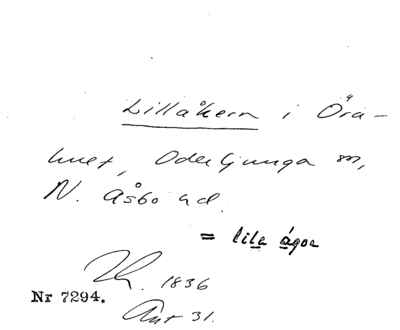 Lillåkern i Öra-
huset, Oderljunga sn,
N. Åsbo hd.
= lila ágor
1836
Nr 7294.
Ant 31.